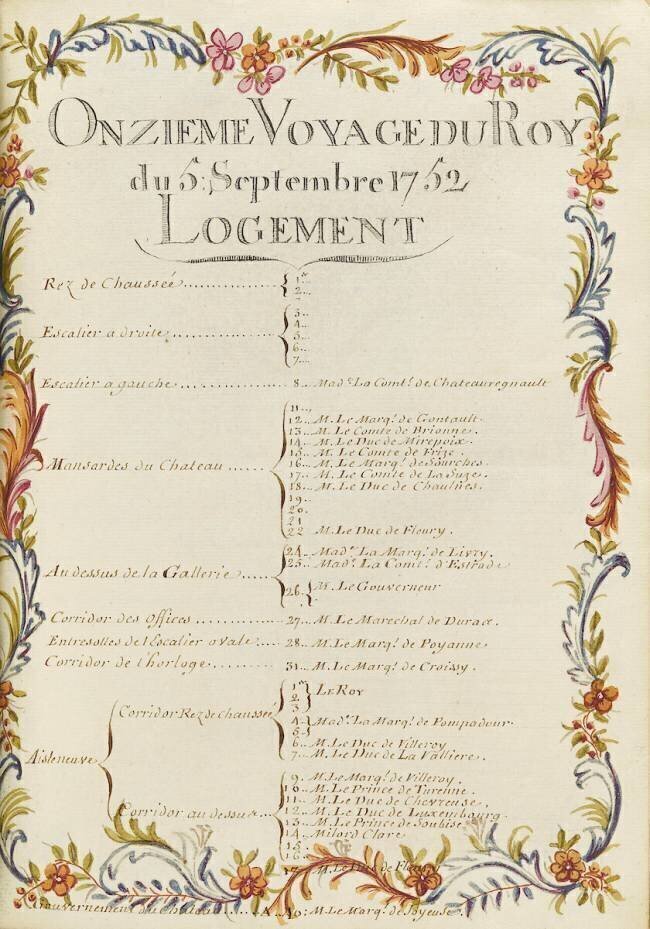 ONZIEME VOYAGE DU ROY
du 5. Septembre 1752
LOGEMENT
Rez de Chaussée ............... 1er
2...
Escalier a droite ............... 3...
4...
5...
6...
7...
Escalier a gauche ............... 8.. Made. La Comt.e de Chateauregnault
Mansardes du Chateau ...... 11...
12.. M. Le Marq.s de Gontault.
13.. M. Le Comte de Brionne.
14.. M. Le Duc de Mirepoix.
15.. M. Le Comte de Frize.
16.. M. Le Marq.s de Sourches.
17.. M. Le Comte de La Suze.
18.. M. Le Duc de Chaulnes.
19..
20.
21
22 M. Le Duc de Fleury.
Au dessus de la Gallerie ..... 24.. Made. La Marq.e de Livry.
25.. Made. La Comt.e d'Estrade
26. M. Le Gouverneur
Corridor des Offices ............ 27.. M. Le Marechal de Duras.
Entresolles de l'Escalier ovale .... 28.. M. Le Marq.s de Poyanne
Corridor de l'horloge ............ 31.. M. Le Marq.s de Croissy.
Aisle neuve
Corridor Rez de chaussée 1er
2 LE ROY
3
4 Made. La Marq.e de Pompadour.
5
6.. M. Le Duc de Villeroy
7.. M. Le Duc de La Valliere.
Corridor au dessus ... 9.. M. Le Marq.s de Villeroy.
10.. M. Le Prince de Turenne.
11.. M. Le Duc de Chevreuse.
12.. M. Le Duc de Luxembourg.
13.. M. Le Prince de Soubise
14 Milord Clare
15..
16..
17.. M. Le Duc de Fleury
Gouvernement du Chateau ..... A. A9: M. Le Marq.s de Joyeuse.